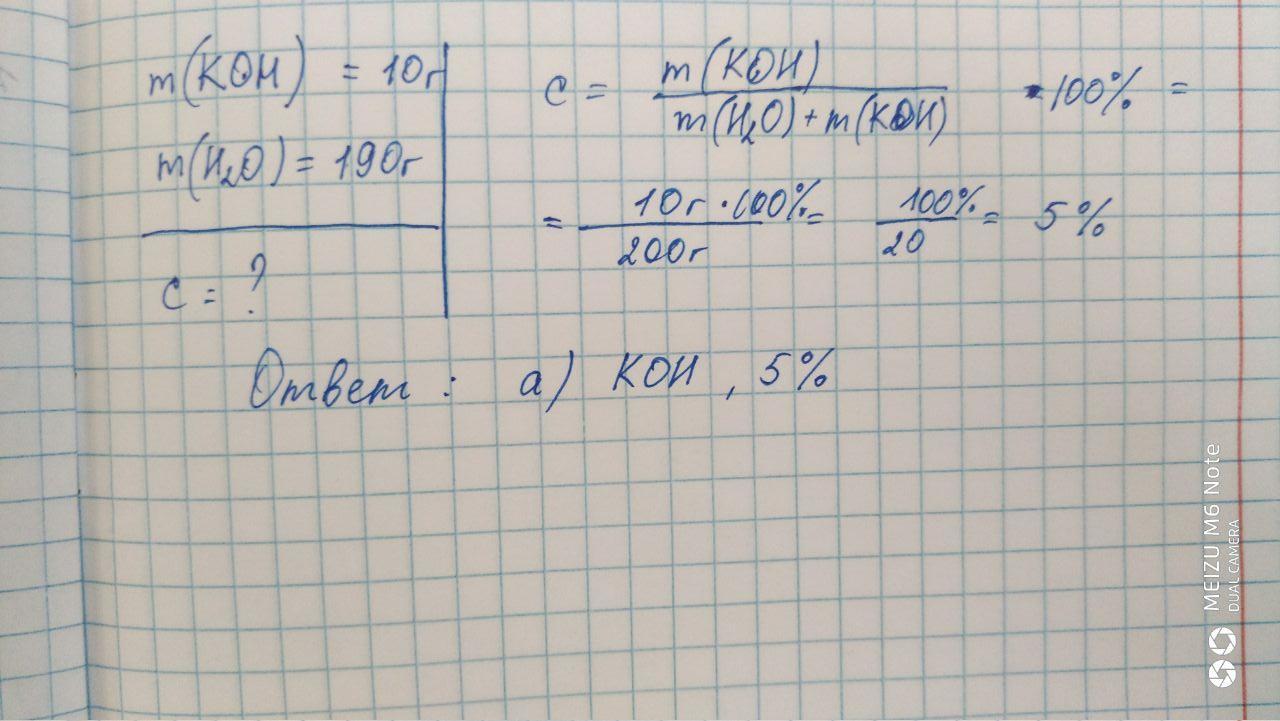 m(KOH) = 10г
m(H₂O) = 190г
c = ?
c = m(KOH) / m(H₂O) + m(KOH) · 100% =
= 10г · 100% / 200г = 100% / 20 = 5%
Ответ: а) KOH, 5%
MEIZU M6 Note
DUAL CAMERA